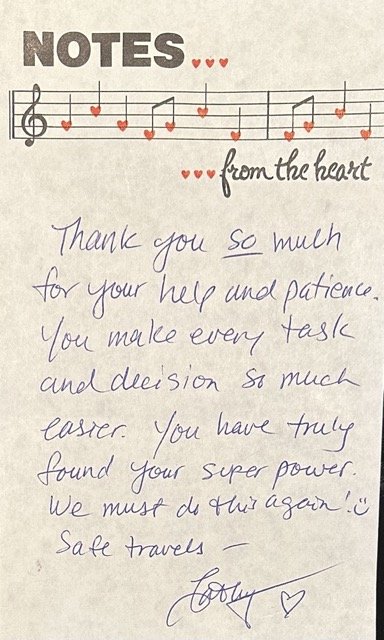 NOTES...
...from the heart
Thank you so much
for your help and patience.
You make every task
and decision so much
easier. You have truly
found your super power.
We must do this again! ☺
Safe travels —
♡